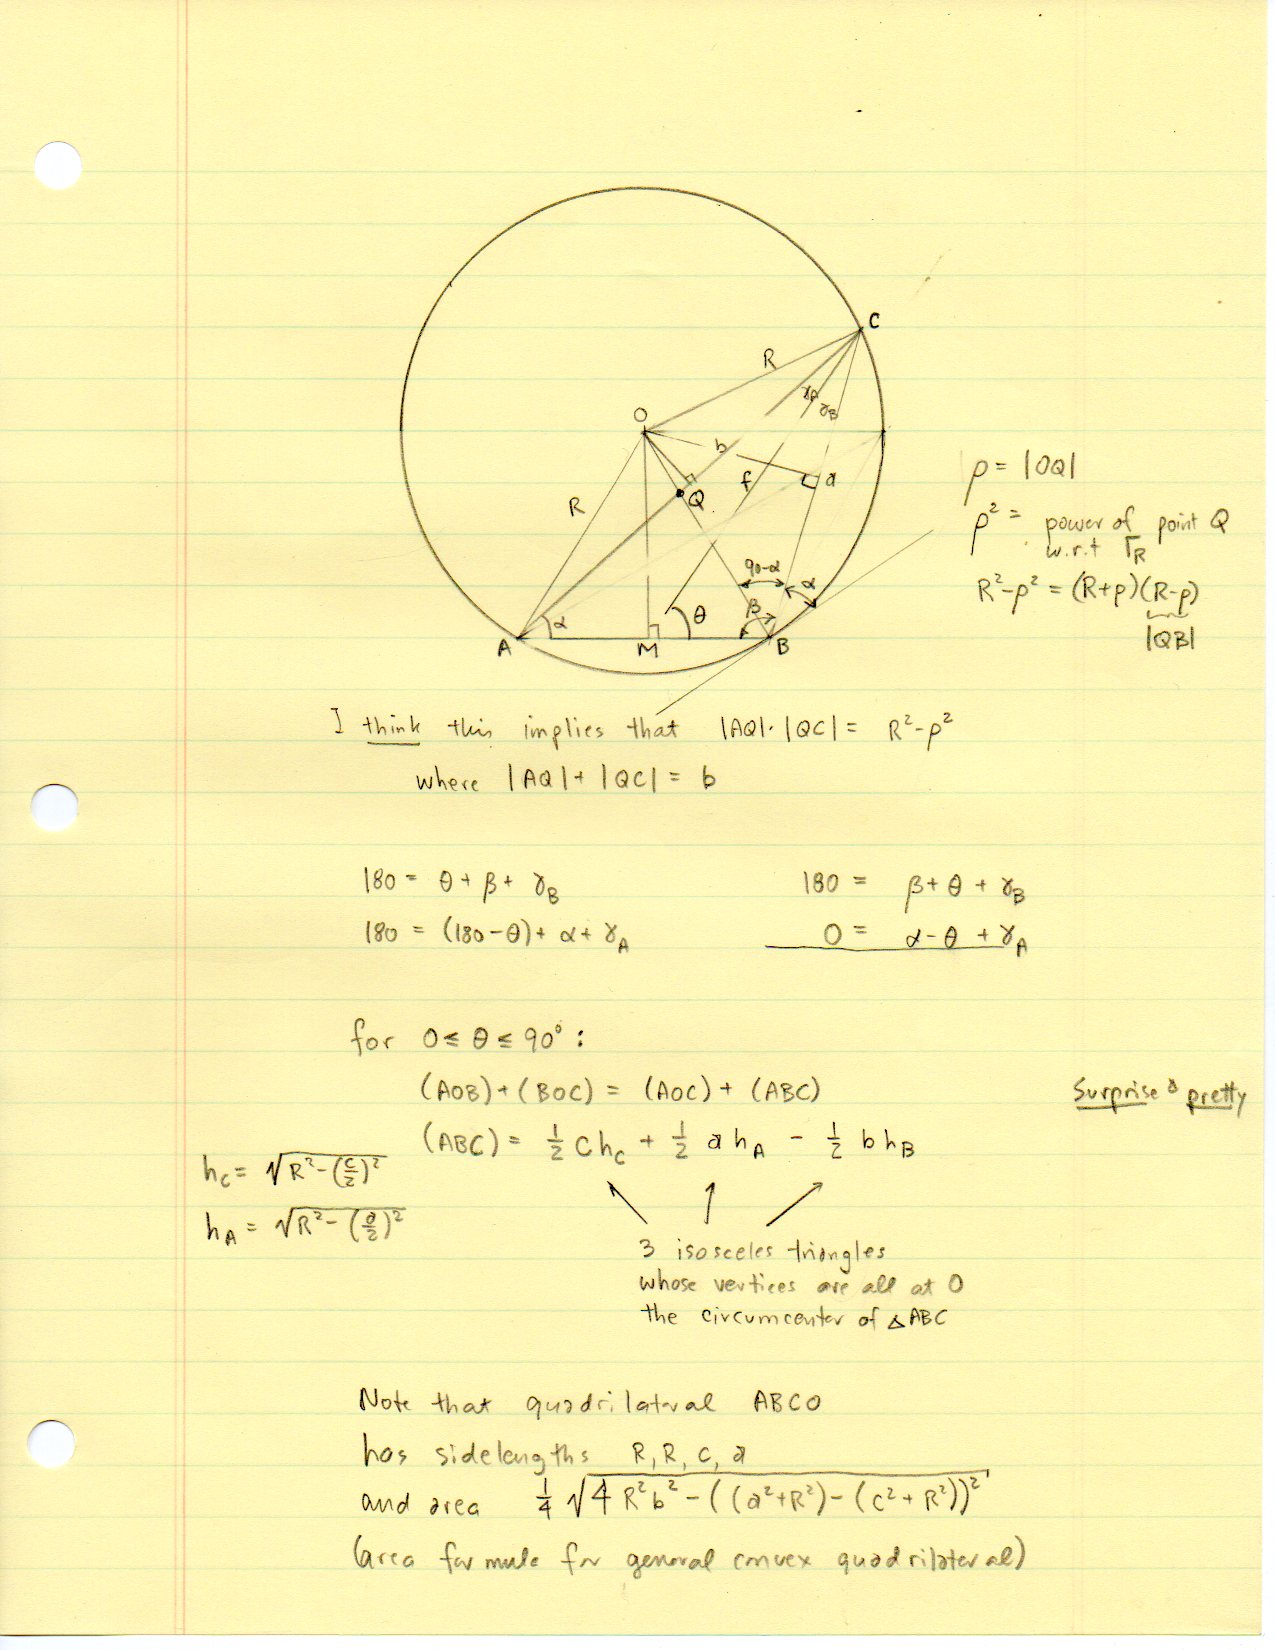 C
R
γA γB
O
b
a
f
Q
R
90-α
α
β
α
θ
A
M
B
ρ = |OQ|
ρ² = power of point Q
w.r.t Γ_R
R²-ρ² = (R+ρ)(R-ρ)
|QB|
I think this implies that |AQ|·|QC| = R²-ρ²
where |AQ|+|QC| = b
180 = θ + β + γ_B
180 = β + θ + γ_B
180 = (180-θ) + α + γ_A
0 = α - θ + γ_A
for 0 ≤ θ ≤ 90°:
(AOB)+(BOC) = (AOC) + (ABC)
Surprise & pretty
(ABC) = ½ c h_c + ½ a h_A - ½ b h_B
h_c = √(R²-(c/2)²)
h_A = √(R²-(a/2)²)
3 isosceles triangles
whose vertices are all at O
the circumcenter of △ABC
Note that quadrilateral ABCO
has sidelengths R, R, c, a
and area ¼ √(4R²b² - ((a²+R²)-(c²+R²))²)
(area formula for general convex quadrilateral)